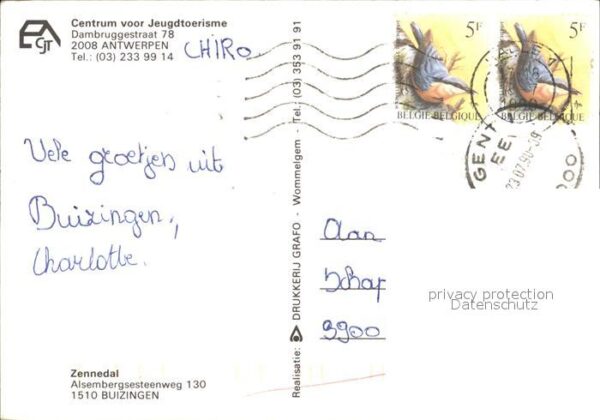 CJT
Centrum voor Jeugdtoerisme
Dambruggestraat 78
2008 ANTWERPEN
Tel.: (03) 233 99 14
CHIRO
5F
5F
BELGIE-BELGIQUE
BELGIE-BELGIQUE
GENT
23 07.90-09
Vele groetjes uit
Buizingen,
Charlotte.
Aan
3900
privacy protection
Datenschutz
Realisatie: DRUKKERIJ GRAFO - Wommelgem - Tel.: (03) 353 91 91
Zennedal
Alsembergsesteenweg 130
1510 BUIZINGEN